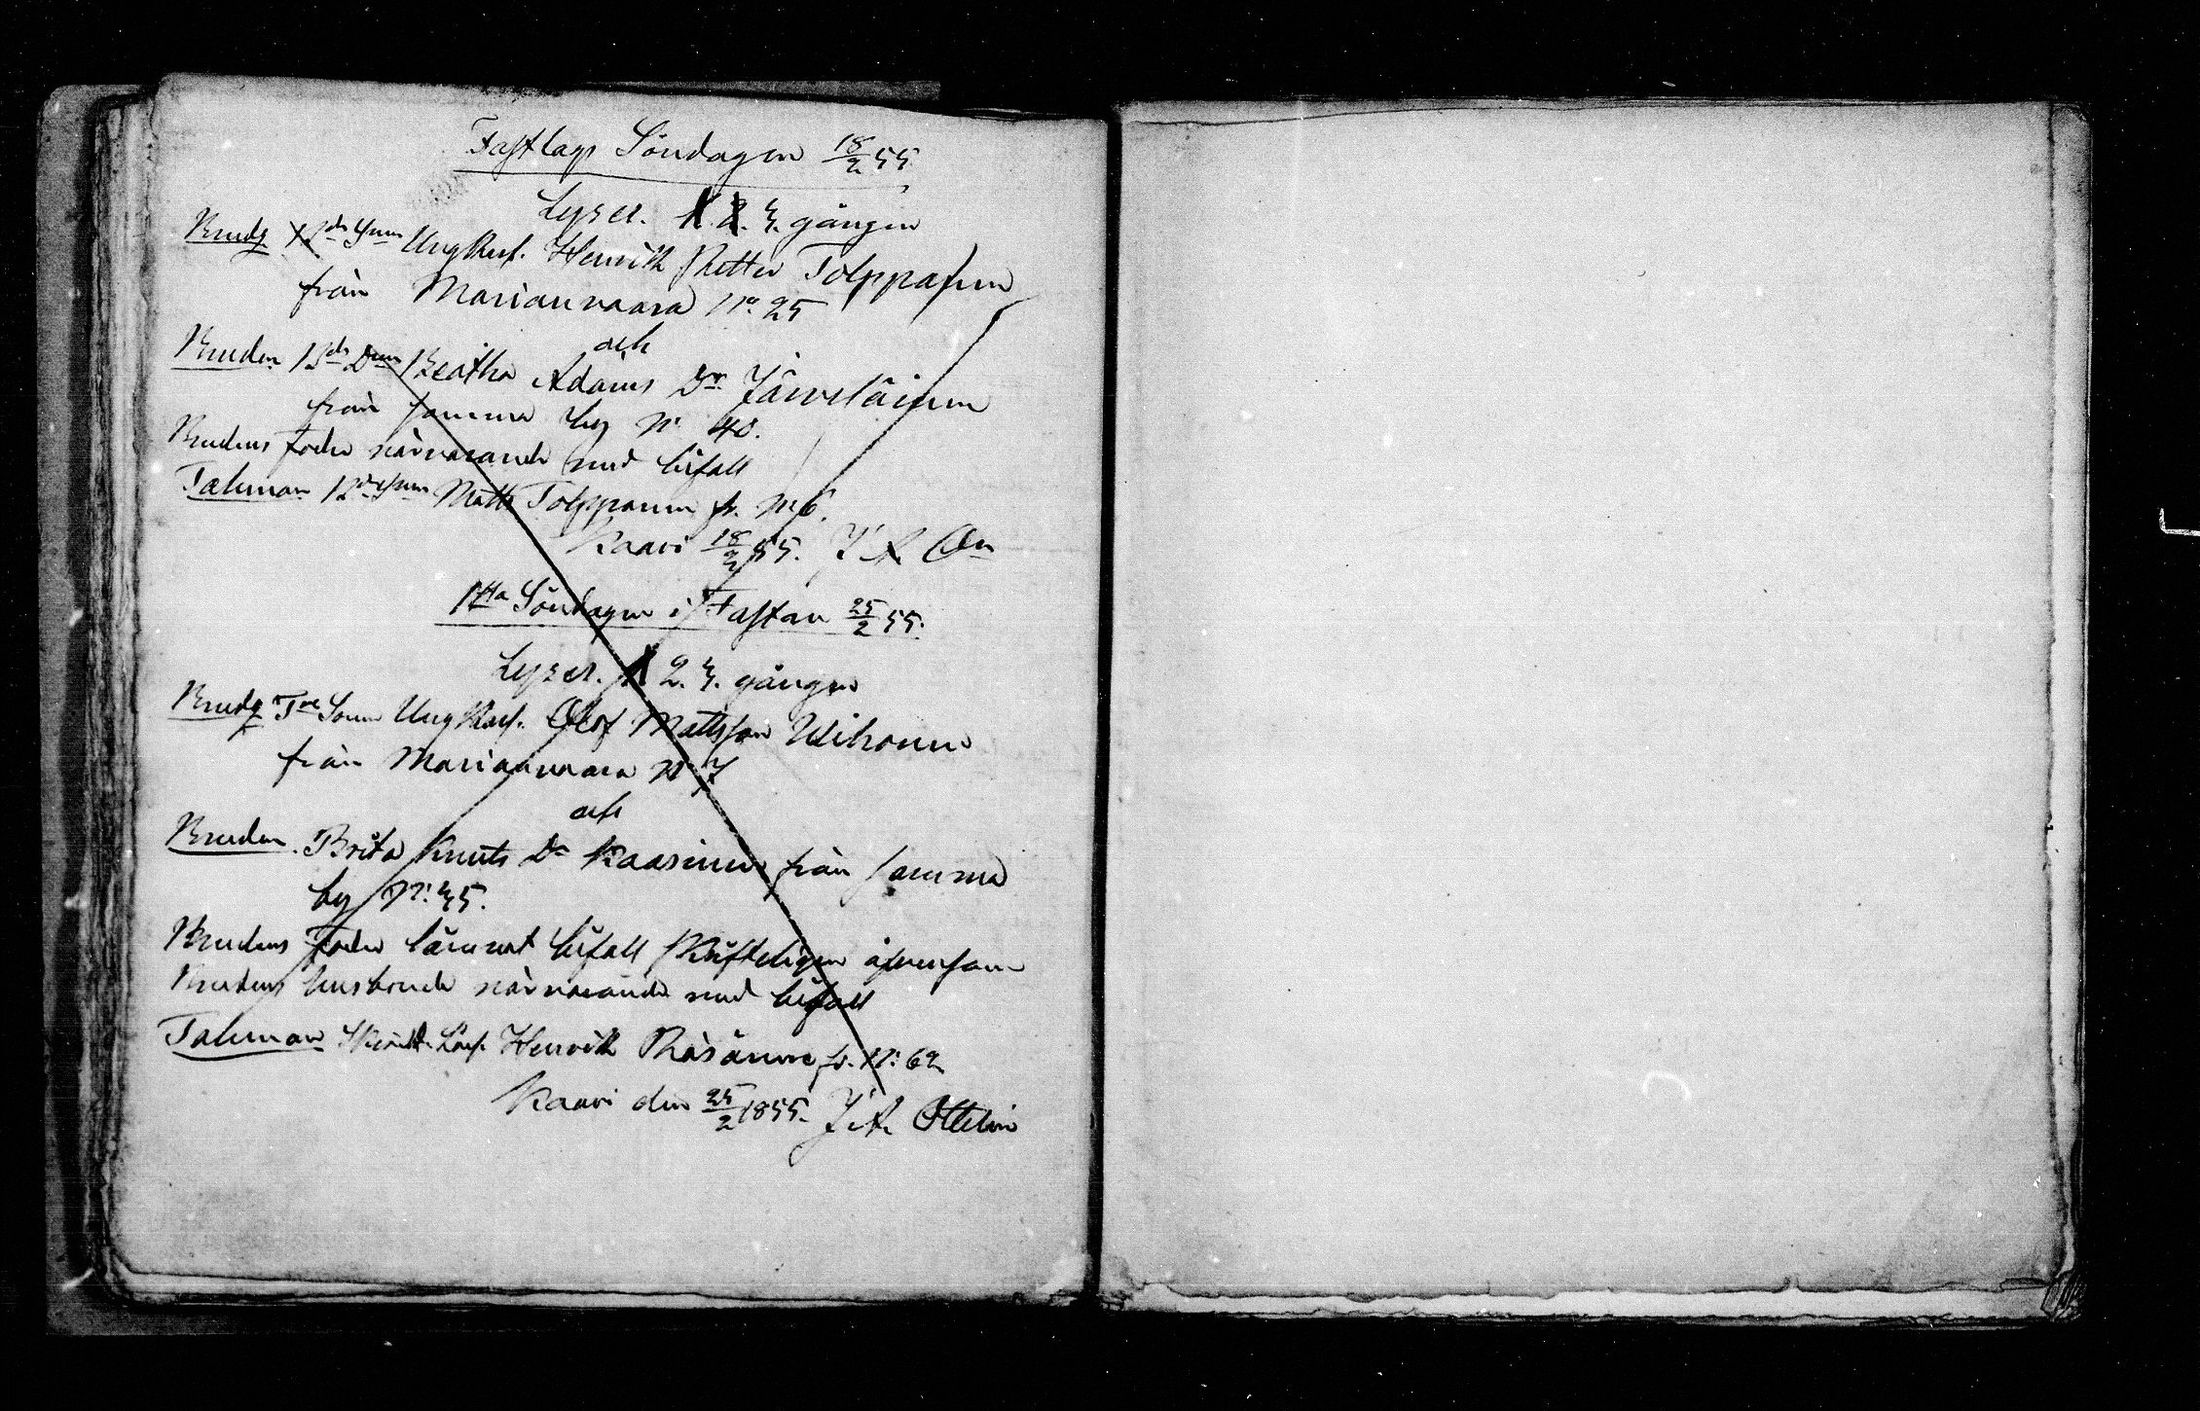 Fastlags Söndagen 18/2 55.
Lyses. 1. 2. 3. gången
Brudg. Bde Sonen Ungkarl. Henrik Petter Tolppainen
från Marianvaara No 25
och
Bruden Bde Dtren Beatha Adams Dr Järveläinen
från samma by No 40.
Brudens Fader närvarande med bifall
Talman Bdesonen Matts Tolppanen fr. No 6.
Kaavi 18/2 55. J A On
1sta Söndagen i Fastan 25/2 55.
Lyses. 1 2. 3. gången
Brudg. Ungkarl. Olof Mattsson Wihonen
från Marianvaara No 7
och
Bruden. Brita Knuts Dr Kaasinen från samma
by No 35.
Brudens Fader lämnat bifall skrifteligen äfvensom
Brudens husbonde närvarande med bifall
Talman Henrik Räsänen fr. No 62
Kaavi den 25/2 1855. J. A. Ottelin